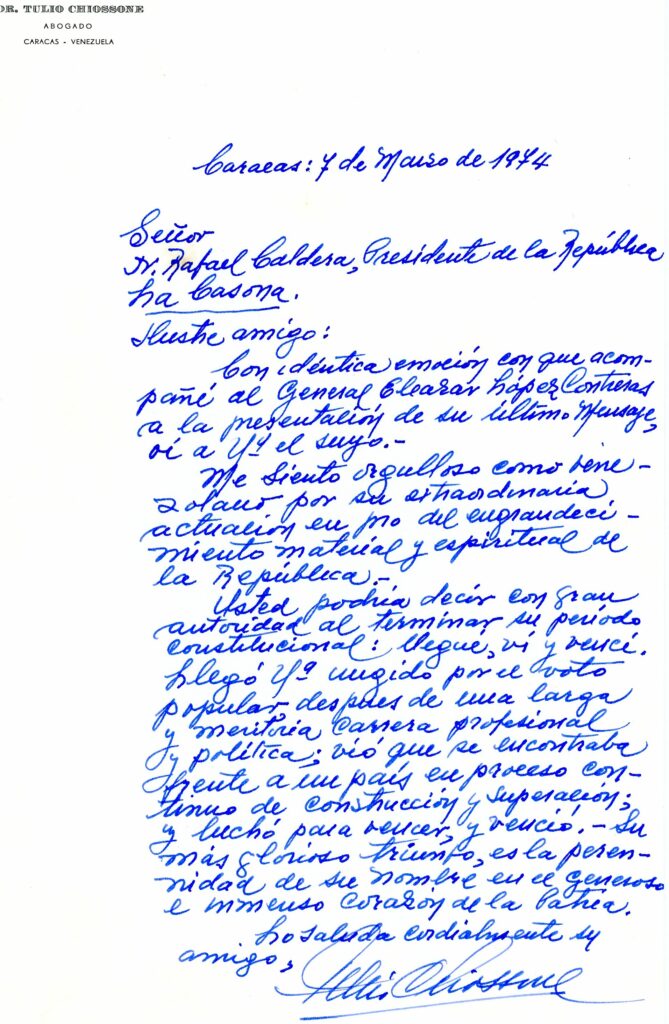 DR. TULIO CHIOSSONE
ABOGADO
CARACAS - VENEZUELA
Caracas: 7 de Marzo de 1974
Señor
Dr. Rafael Caldera, Presidente de la República
La Casona.
Ilustre amigo:
Con idéntica emoción con que acom-
pañé al General Eleazar López Contreras
a la presentación de su último Mensaje,
oí a Ud el suyo.-
Me siento orgulloso como vene-
zolano por su extraordinaria
actuación en pro del engrandeci-
miento material y espiritual de
la República.-
Usted podría decir con gran
autoridad al terminar su período
constitucional: llegué, ví y vencí.
Llegó Ud ungido por el voto
popular despues de una larga
y meritoria carrera profesional
y política; vió que se encontraba
frente a un país en proceso con-
tinuo de construcción y superación;
y luchó para vencer, y venció.- Su
más glorioso triunfo, es la peren-
nidad de su nombre en el generoso
e inmenso corazón de la Patria.
Lo saluda cordialmente su
amigo,
Tulio Chiossone